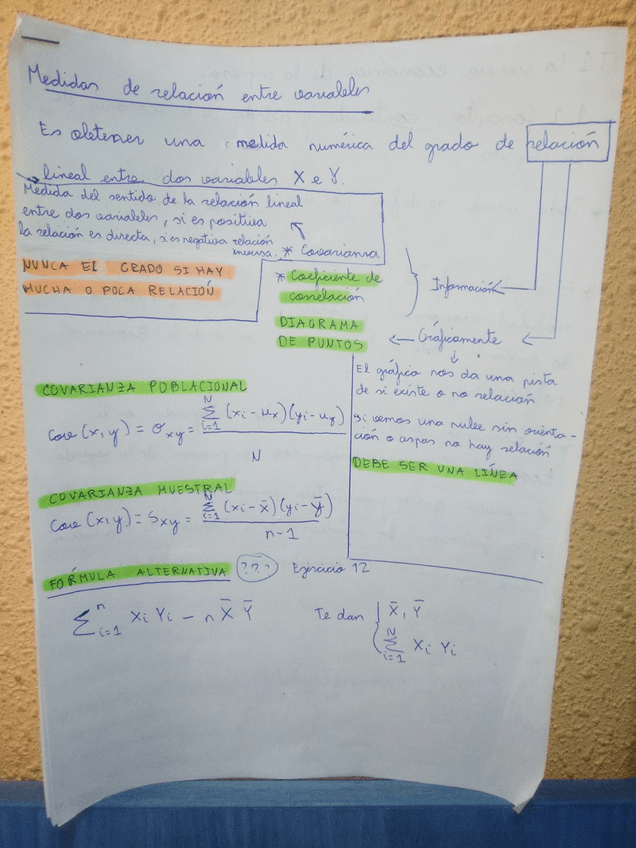 Medidas de relación entre variables
Es obtener una medida numérica del grado de relación
lineal entre dos variables X e Y.
Medida del sentido de la relación lineal
entre dos variables, si es positiva
la relación es directa, si es negativa relación
inversa.
* Covarianza
NUNCA EL GRADO SI HAY
MUCHA O POCA RELACIÓN
* Coeficiente de
correlación
Información
DIAGRAMA
DE PUNTOS
Gráficamente
El gráfico nos da una pista
de si existe o no relación
Si vemos una nube sin orienta-
ción o aspas no hay relación
DEBE SER UNA LÍNEA
COVARIANZA POBLACIONAL
cov (x, y) = σxy = Σ_{i=1}^{N} (xi - ux)(yi - uy) / N
COVARIANZA MUESTRAL
Cov (x,y) = Sxy = Σ_{i=1}^{N} (xi - x̄)(yi - ȳ) / n-1
FORMULA ALTERNATIVA ??? Ejercicio 12
Σ_{i=1}^{n} Xi Yi - n X̄ Ȳ
Te dan { X̄, Ȳ
Σ_{i=1}^{N} Xi Yi